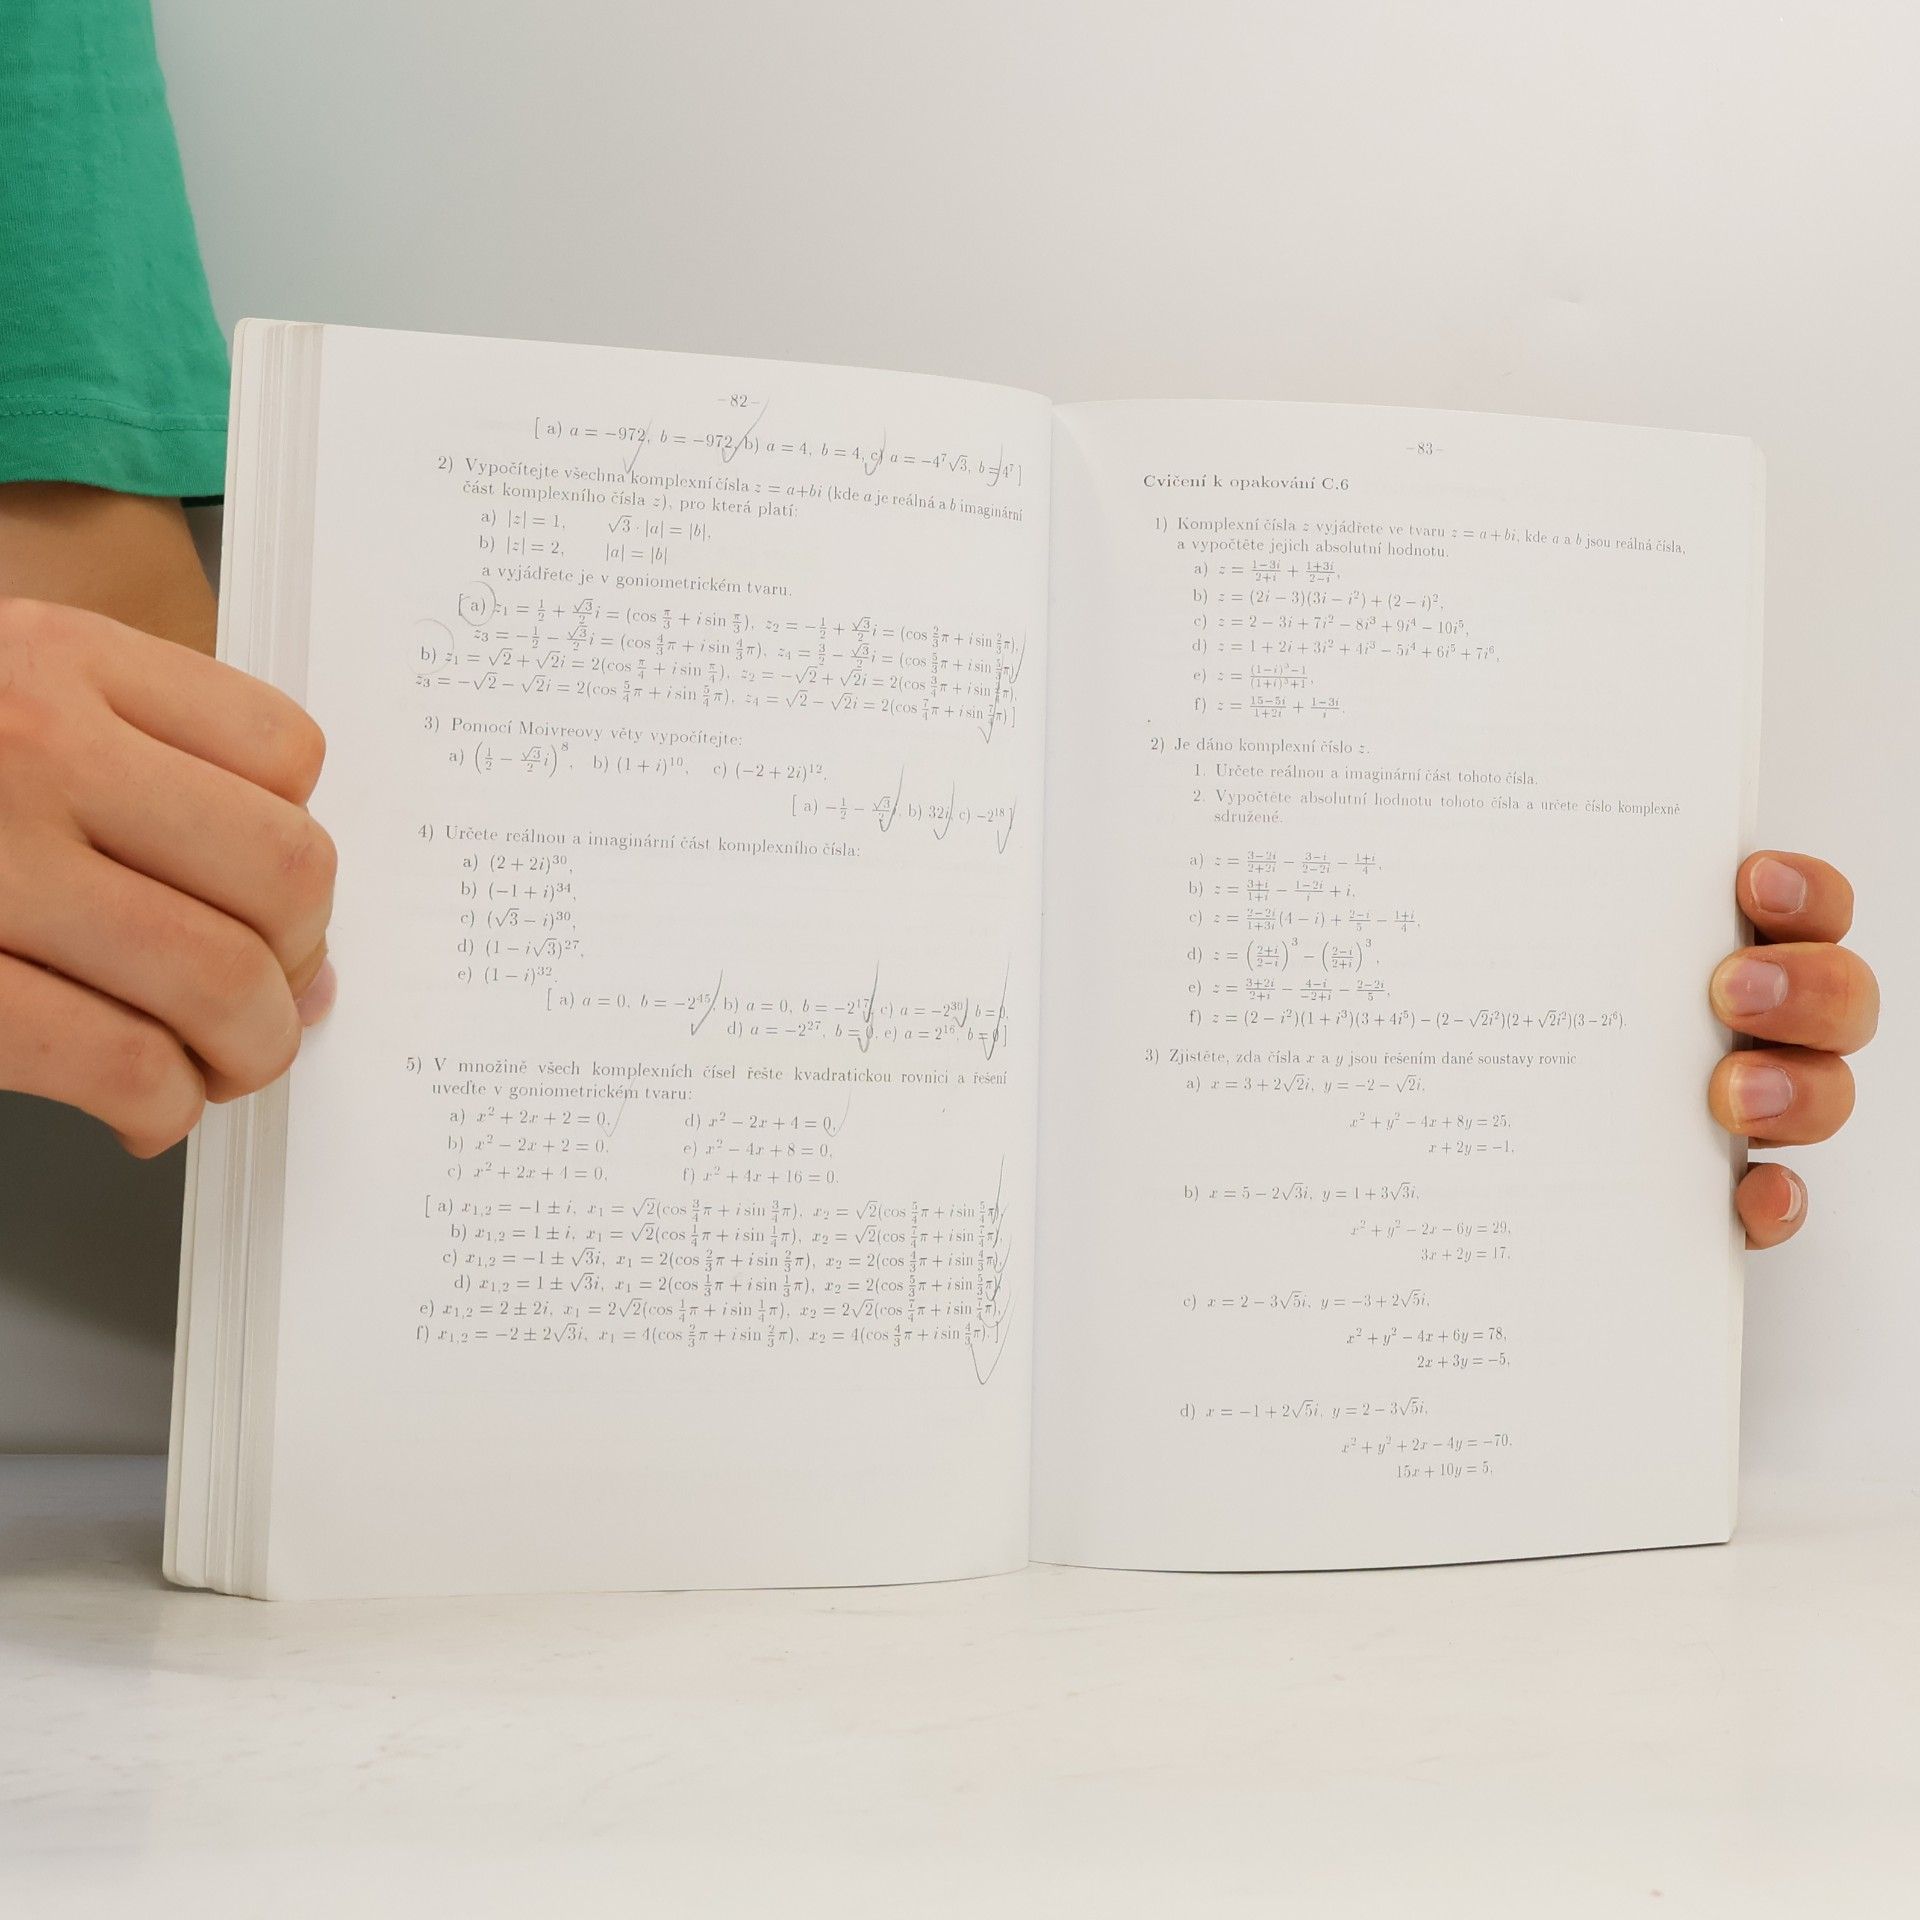 –82–
[ a) a = −972, b = −972, b) a = 4, b = 4, c) a = −4⁷√3, b = 4⁷ ]
2) Vypočítejte všechna komplexní čísla z = a+bi (kde a je reálná a b imaginární
část komplexního čísla z), pro která platí:
a) |z| = 1, √3 · |a| = |b|,
b) |z| = 2, |a| = |b|
a vyjádřete je v goniometrickém tvaru.
[ a) z₁ = 1/2 + √3/2 i = (cos π/3 + i sin π/3), z₂ = −1/2 + √3/2 i = (cos 2/3 π + i sin 2/3 π),
z₃ = −1/2 − √3/2 i = (cos 4/3 π + i sin 4/3 π), z₄ = 3/2 − √3/2 i = (cos 5/3 π + i sin 5/3 π)
b) z₁ = √2 + √2i = 2(cos π/4 + i sin π/4), z₂ = −√2 + √2i = 2(cos 3/4 π + i sin 3/4 π),
z₃ = −√2 − √2i = 2(cos 5/4 π + i sin 5/4 π), z₄ = √2 − √2i = 2(cos 7/4 π + i sin 7/4 π) ]
3) Pomocí Moivreovy věty vypočítejte:
a) (1/2 − √3/2 i)⁸, b) (1 + i)¹⁰, c) (−2 + 2i)¹².
[ a) −1/2 − √3/2 i, b) 32i, c) −2¹⁸ ]
4) Určete reálnou a imaginární část komplexního čísla:
a) (2 + 2i)³⁰,
b) (−1 + i)³⁴,
c) (√3 − i)³⁰,
d) (1 − i√3)²⁷,
e) (1 − i)³².
[ a) a = 0, b = −2⁴⁵, b) a = 0, b = −2¹⁷, c) a = −2³⁰, b = 0,
d) a = −2²⁷, b = 0, e) a = 2¹⁶, b = 0 ]
5) V množině všech komplexních čísel řešte kvadratickou rovnici a řešení
uveďte v goniometrickém tvaru:
a) x² + 2x + 2 = 0, d) x² − 2x + 4 = 0,
b) x² − 2x + 2 = 0, e) x² − 4x + 8 = 0,
c) x² + 2x + 4 = 0, f) x² + 4x + 16 = 0.
[ a) x₁,₂ = −1 ± i, x₁ = √2(cos 3/4 π + i sin 3/4 π), x₂ = √2(cos 5/4 π + i sin 5/4 π),
b) x₁,₂ = 1 ± i, x₁ = √2(cos 1/4 π + i sin 1/4 π), x₂ = √2(cos 7/4 π + i sin 7/4 π),
c) x₁,₂ = −1 ± √3i, x₁ = 2(cos 2/3 π + i sin 2/3 π), x₂ = 2(cos 4/3 π + i sin 4/3 π),
d) x₁,₂ = 1 ± √3i, x₁ = 2(cos 1/3 π + i sin 1/3 π), x₂ = 2(cos 5/3 π + i sin 5/3 π),
e) x₁,₂ = 2 ± 2i, x₁ = 2√2(cos 1/4 π + i sin 1/4 π), x₂ = 2√2(cos 7/4 π + i sin 7/4 π),
f) x₁,₂ = −2 ± 2√3i, x₁ = 4(cos 2/3 π + i sin 2/3 π), x₂ = 4(cos 4/3 π + i sin 4/3 π). ]
–83–
Cvičení k opakování C.6
1) Komplexní čísla z vyjádřete ve tvaru z = a + bi, kde a a b jsou reálná čísla,
a vypočtěte jejich absolutní hodnotu.
a) z = (1−3i)/(2+i) + (1+3i)/(2−i),
b) z = (2i − 3)(3i − i²) + (2 − i)²,
c) z = 2 − 3i + 7i² − 8i³ + 9i⁴ − 10i⁵,
d) z = 1 + 2i + 3i² + 4i³ − 5i⁴ + 6i⁵ + 7i⁶,
e) z = ((1−i)³−1)/((1+i)³+1),
f) z = (15−5i)/(1+2i) + (1−3i)/i.
2) Je dáno komplexní číslo z.
1. Určete reálnou a imaginární část tohoto čísla.
2. Vypočtěte absolutní hodnotu tohoto čísla a určete číslo komplexně
sdružené.
a) z = (3−2i)/(2+2i) − (3−i)/(2−2i) − (1+i)/4,
b) z = (3+i)/(1+i) − (1−2i)/i + i,
c) z = (2−2i)/(1+3i)(4 − i) + (2−i)/5 − (1+i)/4,
d) z = ((2+i)/(2−i))³ − ((2−i)/(2+i))³,
e) z = (3+2i)/(2+i) − (4−i)/(−2+i) − (2−2i)/5,
f) z = (2 − i²)(1 + i³)(3 + 4i⁵) − (2 − √2i²)(2 + √2i²)(3 − 2i⁶).
3) Zjistěte, zda čísla x a y jsou řešením dané soustavy rovnic
a) x = 3 + 2√2i, y = −2 − √2i,
x² + y² − 4x + 8y = 25,
x + 2y = −1,
b) x = 5 − 2√3i, y = 1 + 3√3i,
x² + y² − 2x − 6y = 29,
3x + 2y = 17,
c) x = 2 − 3√5i, y = −3 + 2√5i,
x² + y² − 4x + 6y = 78,
2x + 3y = −5,
d) x = −1 + 2√5i, y = 2 − 3√5i,
x² + y² + 2x − 4y = −70,
15x + 10y = 5,